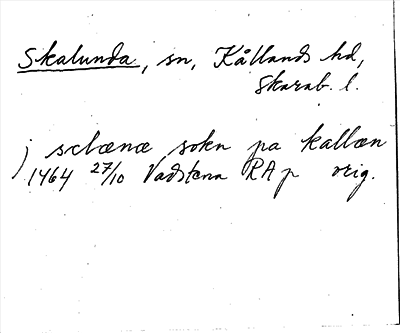 Skalunda, sn, Kållands hd,
Skarab. l.
j schænæ sokn pa kallæn
1464 27/10 Vadstena RA p orig.